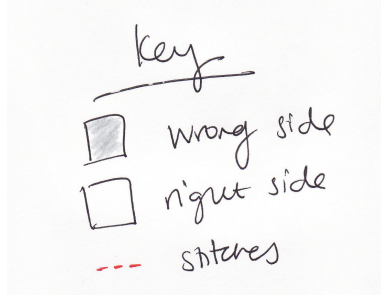 key
wrong side
right side
stitches